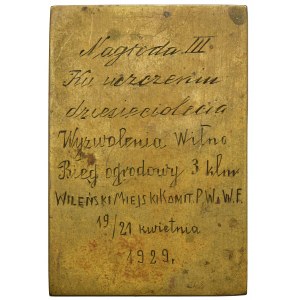 Nagroda III
Ku uczczeniu
dziesięciolecia
Wyzwolenia Wilno
Bieg ogrodowy 3 klm
WILEŃSKI MIEJSKI KOMIT. P.W. i W.F.
19/21 kwietnia
1929.